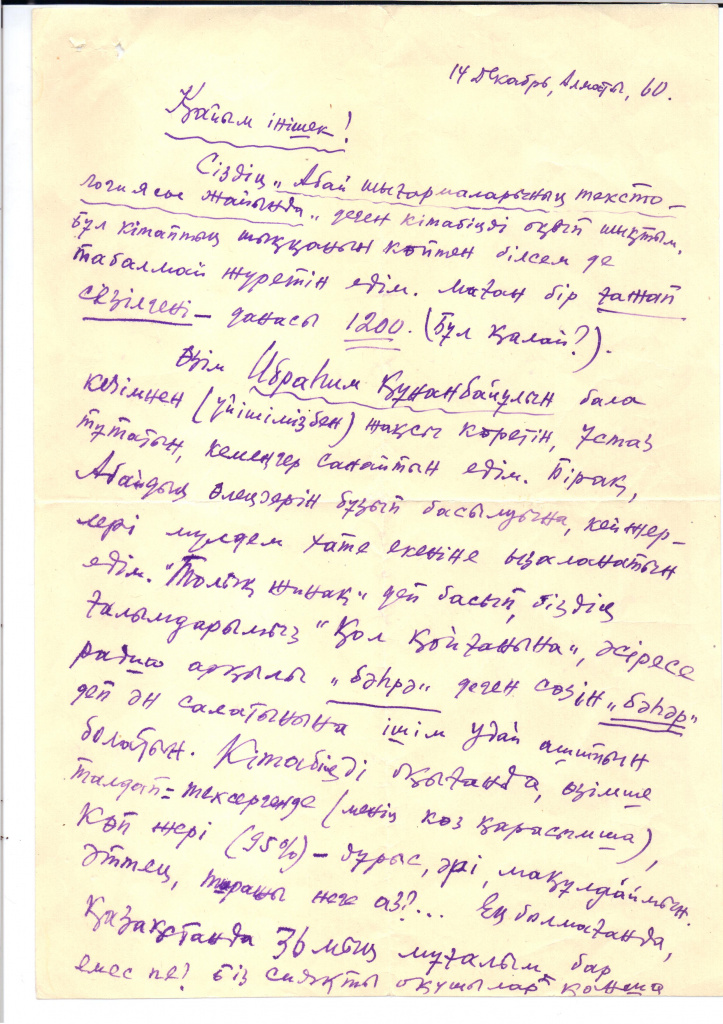 14 декабрь, Алматы, 60.
Қайым інішек!
Сіздің „Абай шығармаларының тексто-
логиясы жайында„ деген кітабіңді оқып шықтым.
Бұл кітаптың шыққанын көптен білсем де
табалмай жүретін едім. Маған бір ғажап
сезілгені – данасы 1200. (Бұл қалай?).
Өзім Ибраһим Құнанбайұлын бала
кезімнен (үйішімізбен) жақсы көретін, ұстаз
тұтатын, кемеңгер санайтын едім. Бірақ,
Абайдың өлеңдерін бұзып басылуына, кей жер-
лері мүлдем хате екеніне ызаланатын
едім. "Толық жинақ" деп басып, біздің
ғалымдарымыз "Қол қойғанына", әсіресе
радио арқылы „бәһрә" деген сөзін „бәһәр"
деп ән салатынына ішім удай ашитын
болатын. Кітабіңді оқығанда, өзімше
талдап-тексергенде (менің көз қарасымша),
көп жері (95%) – дұрыс, әрі, мақұлдаймын.
Әттең, тиражы неге аз?... Ең болмағанда,
Қазақстанда 36 мың мұғалым бар
емес пе? Біз сияқты оқушылар қанша